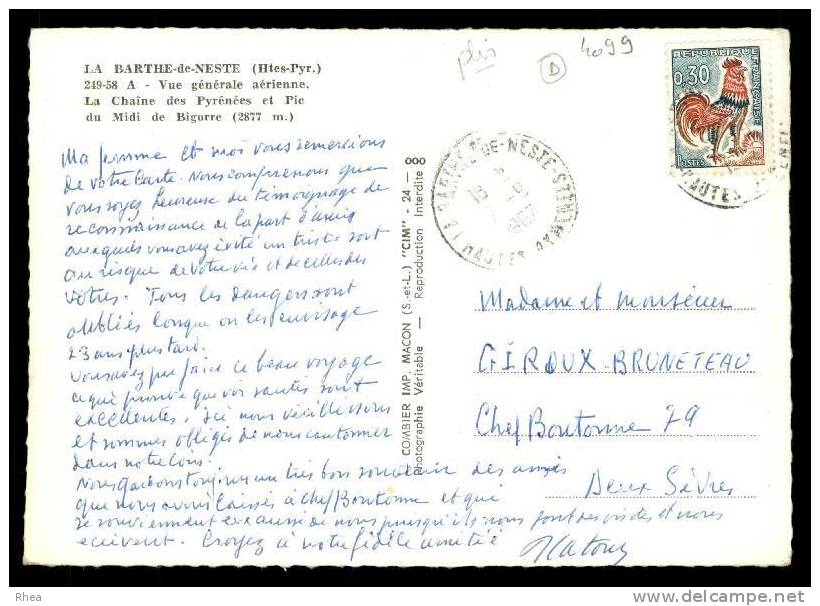 LA BARTHE-de-NESTE (Htes-Pyr.)
249-58 A - Vue générale aérienne.
La Chaîne des Pyrénées et Pic
du Midi de Bigorre (2877 m.)
Ma femme et moi vous remercions
de votre Carte. Nous comprenons que
vous soyez heureuse du témoignage de
reconnaissance de la part d'amis
auxquels vous avez évité un triste sort
au risque de votre vie et de celles des
vôtres. Tous les dangers sont
oubliés lorsque on les envisage
23 ans plus tard.
Vous avez pu faire ce beau voyage
ce qui prouve que vos santés sont
excellentes. Ici nous vieillissons
et sommes obligés de nous cantonner
dans notre coin.
Nous gardons toujours un très bon souvenir des amis
que nous avons laissés à Chef Boutonne et qui
se souviennent de nous puisqu'ils nous font des visites et nous
écrivent. Croyez à notre fidèle amitié
plis
D
4099
REPUBLIQUE FRANÇAISE
0,30
POSTES
LA BARTHE-DE-NESTE
HAUTES
COMBIER IMP. MACON (S.-et-L.) "CIM" - 24 -
Photographie Véritable — Reproduction Interdite
Madame et monsieur
GIROUX-BRUNETEAU
Chef Boutonne 79
Deux Sèvres
Rhea
delcampe.net